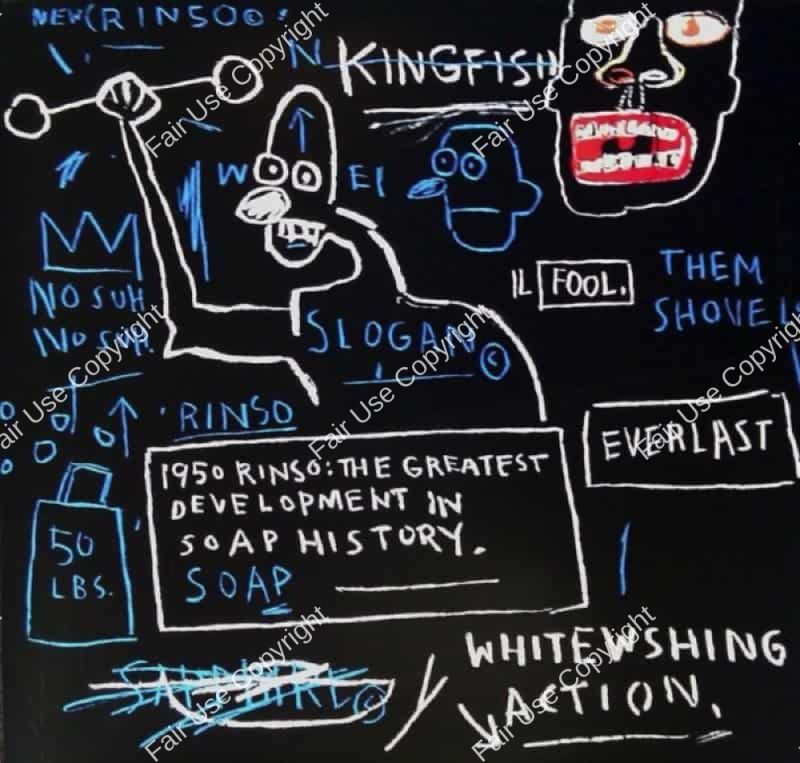 NEW(RINSO©
N KINGFISH
W EI
IL FOOL.
THEM
SHOVELS
NO SUH
NO SUH.
SLOGAN ©
RINSO
EVERLAST
1950 RINSO: THE GREATEST
DEVELOPMENT IN
SOAP HISTORY.
SOAP
50
LBS.
WHITEWSHING
ACTION.
Fair Use Copyright
Fair Use Copyright
Fair Use Copyright
Fair Use Copyright
Fair Use Copyright
Fair Use Copyright
Fair Use Copyright
Fair Use Copyright
Fair Use Copyright